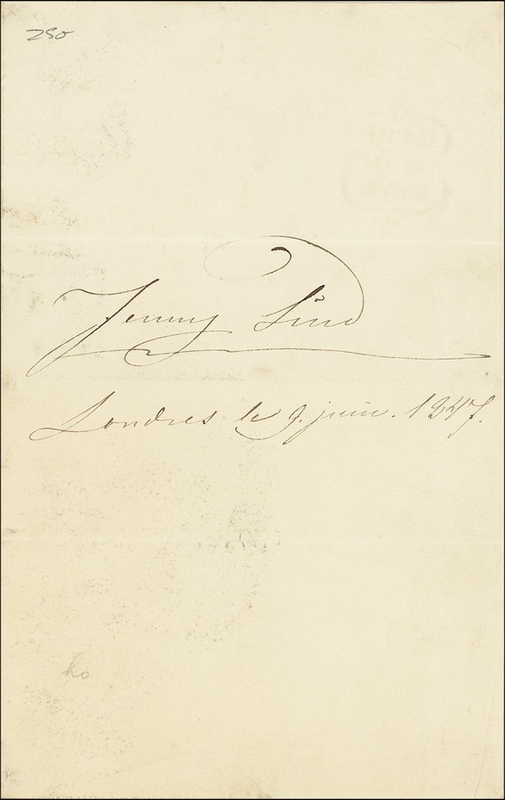 250
Jenny Lind
Londres le 9. juin. 1847.